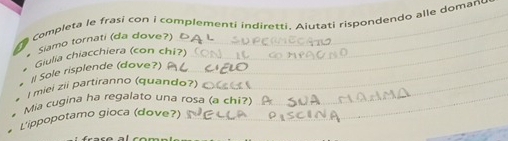 Completa le frasi con i complementi indiretti. Aiutati rispondendo alle
• Siamo tornati (da dove?) DAL
• Giulia chiacchiera (con chi?) CON IL COMPAGNO
• Il Sole risplende (dove?) AL CIELO
• I miei zii partiranno (quando?)
• Mia cugina ha regalato una rosa (a chi?) A SUA MAMMA
• L'ippopotamo gioca (dove?) NELLA PISCINA